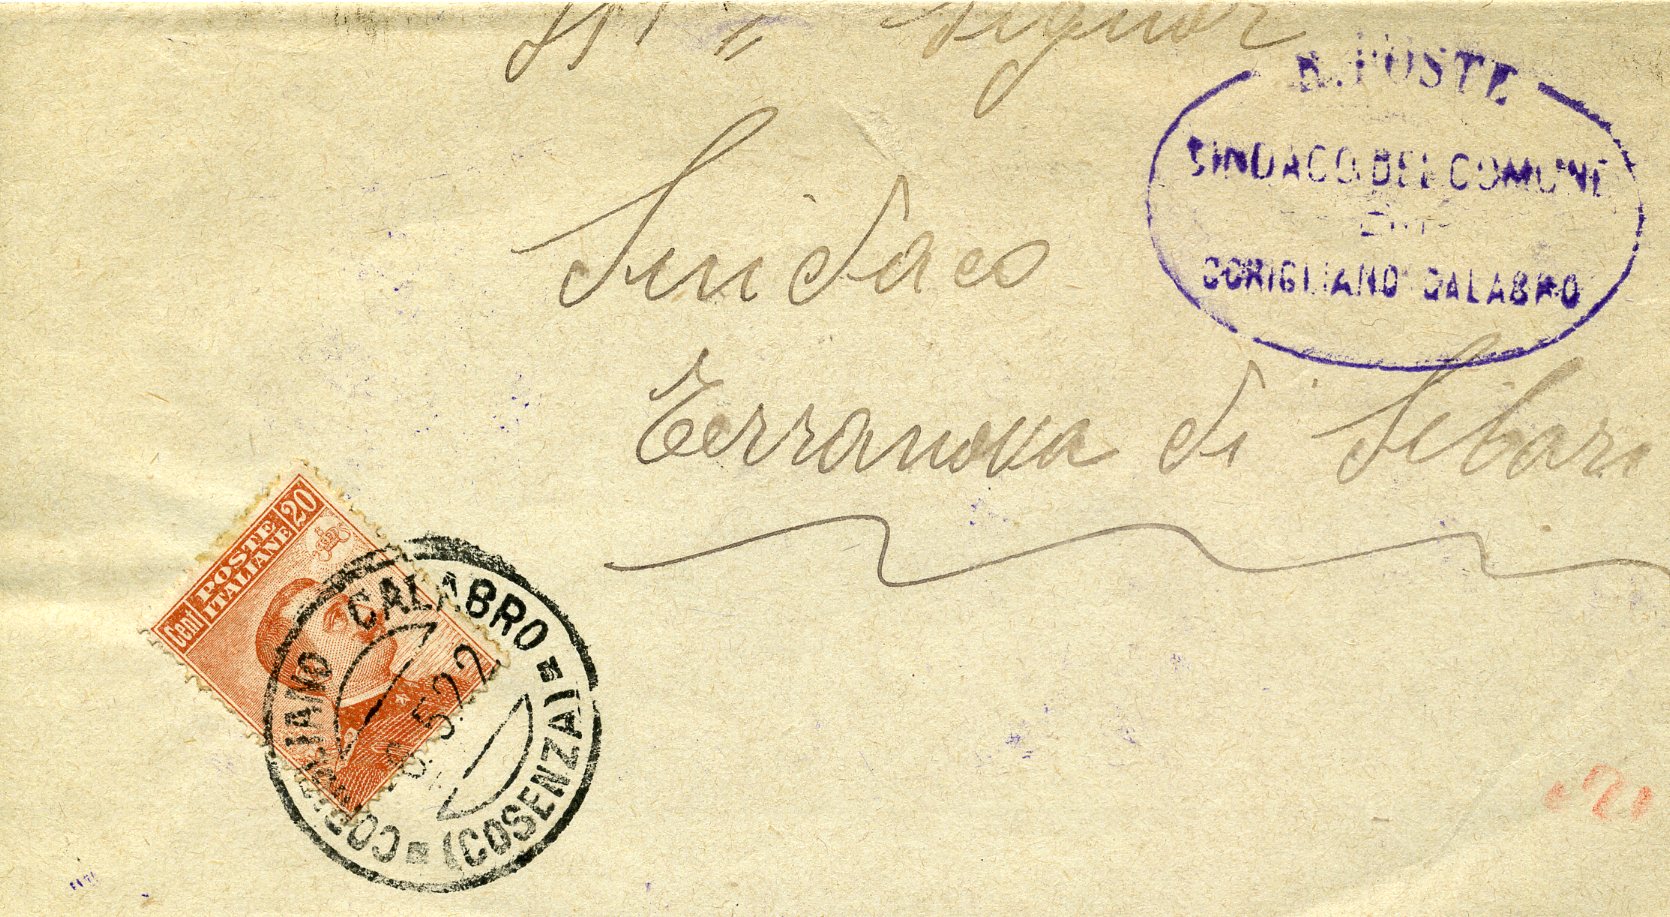 Signor
R. POSTE
SINDACO DEL COMUNE
DI
CORIGLIANO CALABRO
Sindaco
Terranova di Sibari
Cent POSTE ITALIANE 20
CORIGLIANO CALABRO
5.22
(COSENZA)